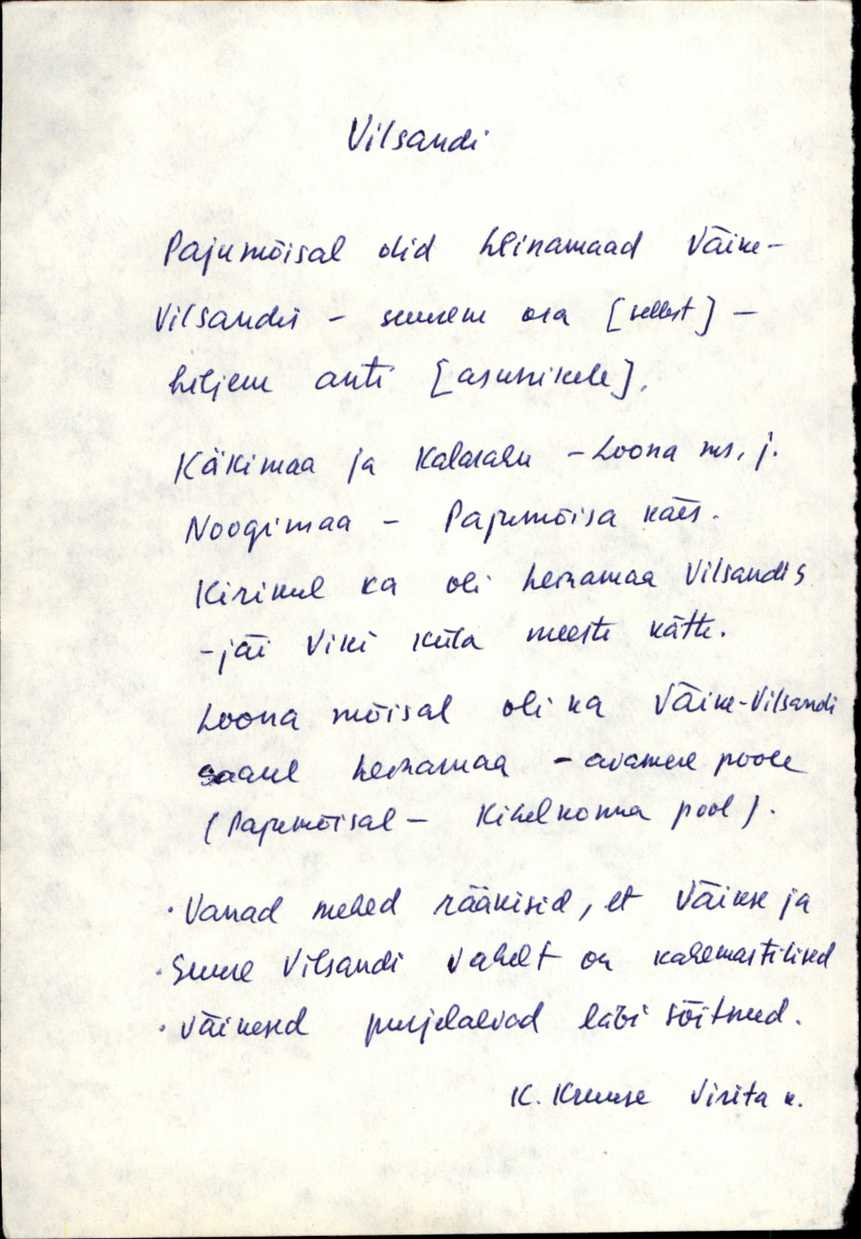 Vilsandi
Pajumõisal olid heinamaad Väike-
Vilsandis - suurem osa [sellest] -
hiljem anti [asunikele].
Käkimaa ja Kalarahu - Loona ms. j.
Noogimaa - Pajumõisa käes.
Kirikul ka oli heinamaa Vilsandis
- jäi Viki küla meeste kätte.
Loona mõisal oli ka Väike-Vilsandi
saarel heinamaa - avamere poole
(Pajumõisal - Kihelkonna pool).
· Vanad mehed rääkisid, et Väikse ja
· Suure Vilsandi vahelt on kahemastilised
· väikesed purjelaevad läbi sõitnud.
K. Kruuse Virita k.